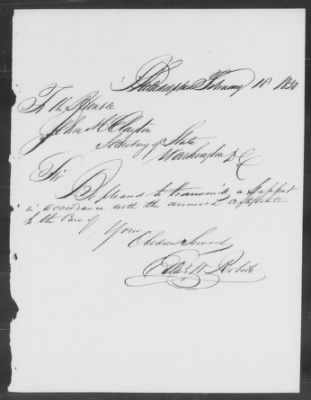 Philadelphia February 18 1850
To
John M Clayton
Secretary of State
Washington D C
Sir
Be pleased to transmit a passport
in accordance with the annexed
to the Care of
Your
Obedient Servant
Edw W Roberts